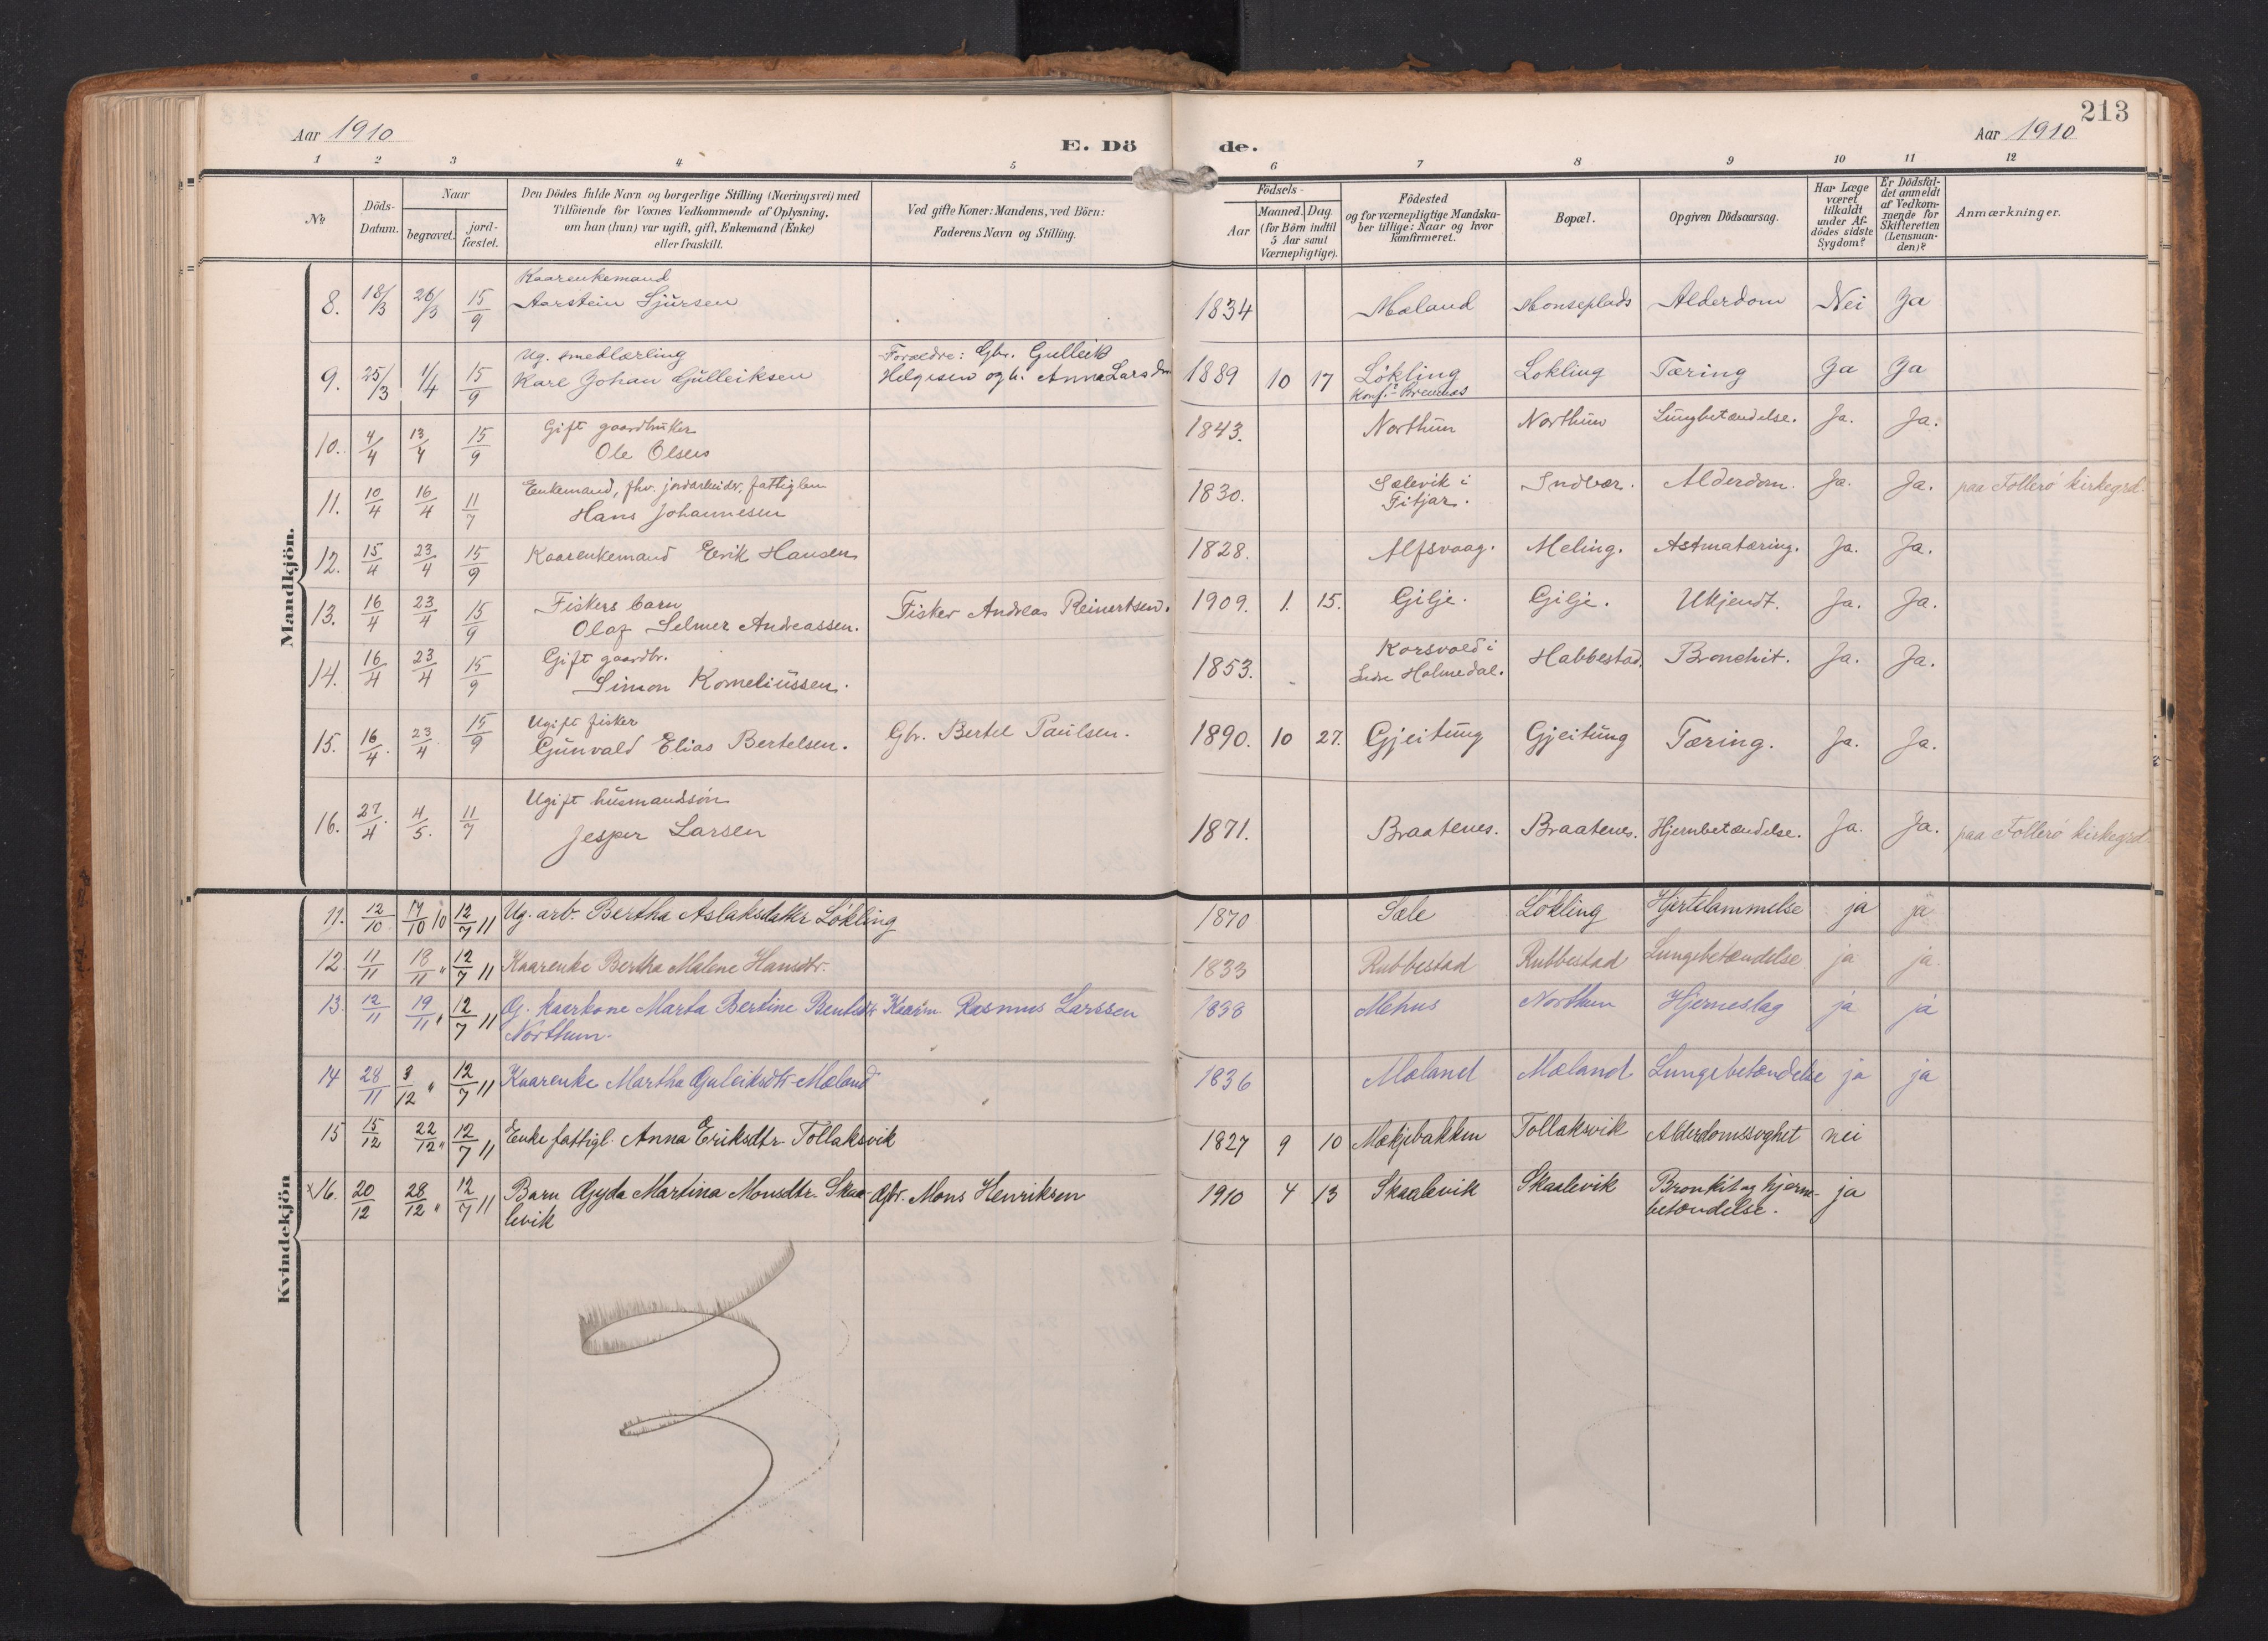 213
Aar 1910
E. Dö de.
Aar 1910
1 2 3 4 5 6 7 8 9 10 11 12
No
Döds-Datum.
Naar
begravet.
jord-fæstet.
Den Dödes fulde Navn og borgerlige Stilling (Næringsvei) med
Tilföiende for Voxnes Vedkommende af Oplysning,
om han (hun) var ugift, gift, Enkemand (Enke)
eller fraskilt.
Ved gifte Koner: Mandens, ved Börn:
Faderens Navn og Stilling.
Födsels-
Aar
Maaned. Dag.
(for Börn indtil
5 Aar samt
Værnepligtige).
Födested
og for værnepligtige Mandska-
ber tillige: Naar og hvor
konfirmeret.
Bopæl.
Opgiven Dödsaarsag.
Har Læge
været
tilkaldt
under Af-
dödes sidste
Sygdom?
Er Dödsfal-
det anmeldt
af Vedkom-
mende for
Skifteretten
(Lensman-
den)?
Anmærkninger.
Mandkjön.
8. 18/3 26/3 15/9 Kaarenkemand
Aarstein Sjursen 1834 Mæland Monseplads Alderdom Nei Ja
9. 25/3 1/4 15/9 Ug. smedlærling
Karl Johan Gulleiksen
Forældre: Gbr. Gulleik
Helgesen og h. Anna Larsdtr
1889 10 17 Lökling
Konf. i Bremnes
Lokling Tæring Ja Ja
10. 4/4 13/4 15/9 Gift gaardbruker
Ole Olsen 1843. Northun Northun Lungbetændelse. Ja. Ja.
11. 10/4 16/4 11/7 Enkemand, fhv. jordarbeider, fattiglem
Hans Johannesen 1830. Sælevik i
Fitjar.
Indvær. Alderdom. Ja. Ja. paa Follerö kirkegrd.
12. 15/4 23/4 15/9 Kaarenkemand Erik Hansen 1828. Alfsvaag. Meling. Astmatæring. Ja. Ja.
13. 16/4 23/4 15/9 Fiskers barn
Olaf Selmer Andreassen. Fisker Andreas Reinertsen. 1909. 1. 15. Gilje. Gilje. Ukjendt. Ja. Ja.
14. 16/4 23/4 15/9 Gift gaardbr.
Simon Korneliussen. 1853. Korsvold i
Indre Holmedal.
Habbestad. Bronchit. Ja. Ja.
15. 16/4. 23/4 15/9 Ugift fisker
Gunvald Elias Bertelsen. Gbr. Bertel Paulsen. 1890. 10 27. Gjeitung Gjeitung Tæring. Ja. Ja.
16. 27/4. 4/5. 11/7 Ugift husmandsön
Jesper Larsen 1871. Braatenes. Braatenes. Hjernbetændelse. Ja. Ja. paa Follerö kirkegrd.
Kvindekjön
11. 12/10 17/10 10 12/7 11 Ug. arb. Bertha Aslaksdatter Lökling 1870 Sæle Lökling Hjertelammelse ja ja
12 11/11 18/11 " 12/7 11 Kaarenke Bertha Malene Hansdtr. 1833 Rubbestad Rubbestad Lungebetændelse ja ja.
13. 12/11 19/11 " 12/7 11 G. kaarkone Marta Bertine Bentsdtr
Northun.
Kaarm. Rasmus Larssen 1838 Mehus Northun Hjerneslag ja ja
14 28/11 3/12 " 12/7 11 Kaarenke Martha Guleiksdtr Mæland 1836 Mæland Mæland Lungebetændelse ja ja
15 15/12 22/12 " 12/7 11 Enke fattigl. Anna Eriksdtr Tollaksvik 1827 9 10 Mækjebakken Tollaksvik Alderdomssvghet nei
16. 20/12 28/12 " 12/7 11 Barn Gyda Martina Monsdtr. Skaa-
levik
Gbr. Mons Henriksen 1910 4 13 Skaalevik Skaalevik Bronkit og hjerne-
betændelse. ja